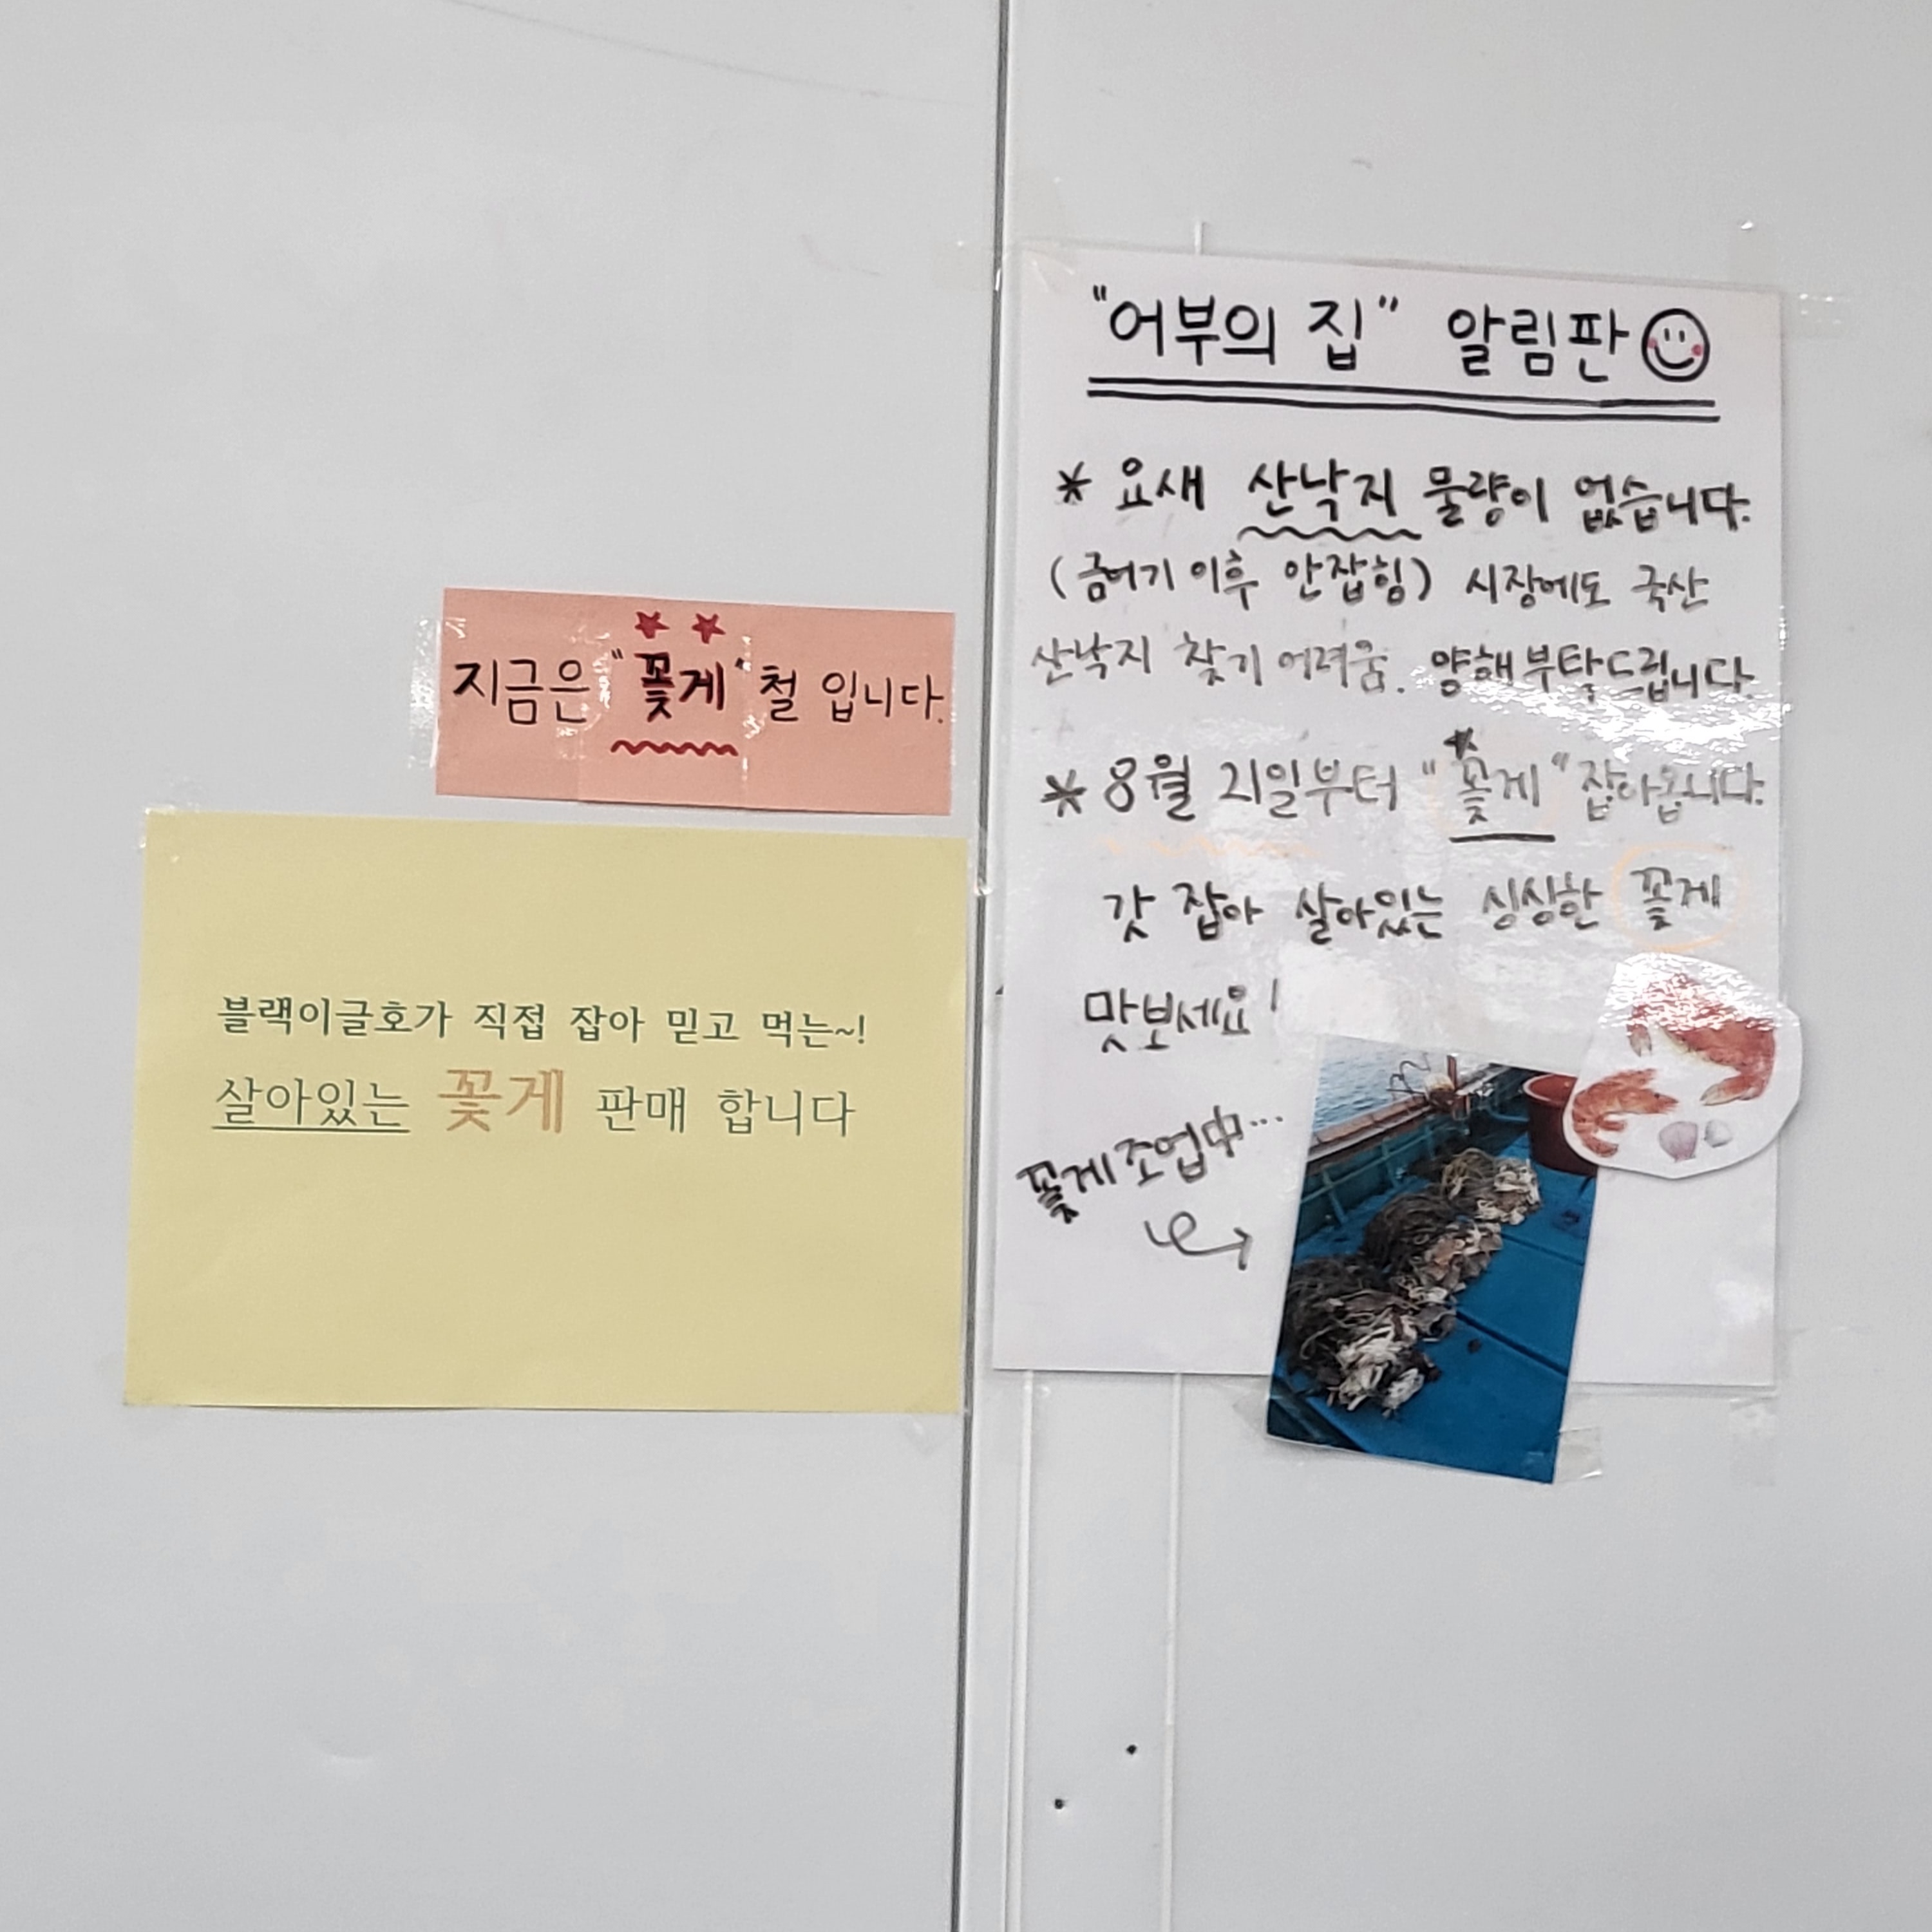 지금은 "꽃게" 철 입니다.
블랙이글호가 직접 잡아 믿고 먹는~!
살아있는 꽃게 판매 합니다
"어부의 집" 알림판
* 요새 산낙지 물량이 없습니다.
(금어기 이후 안잡힘) 시장에도 국산
산낙지 찾기 어려움. 양해부탁드립니다.
* 8월 21일부터 "꽃게" 잡아옵니다.
갓 잡아 살아있는 싱싱한 꽃게
맛보세요!
꽃게조업中...